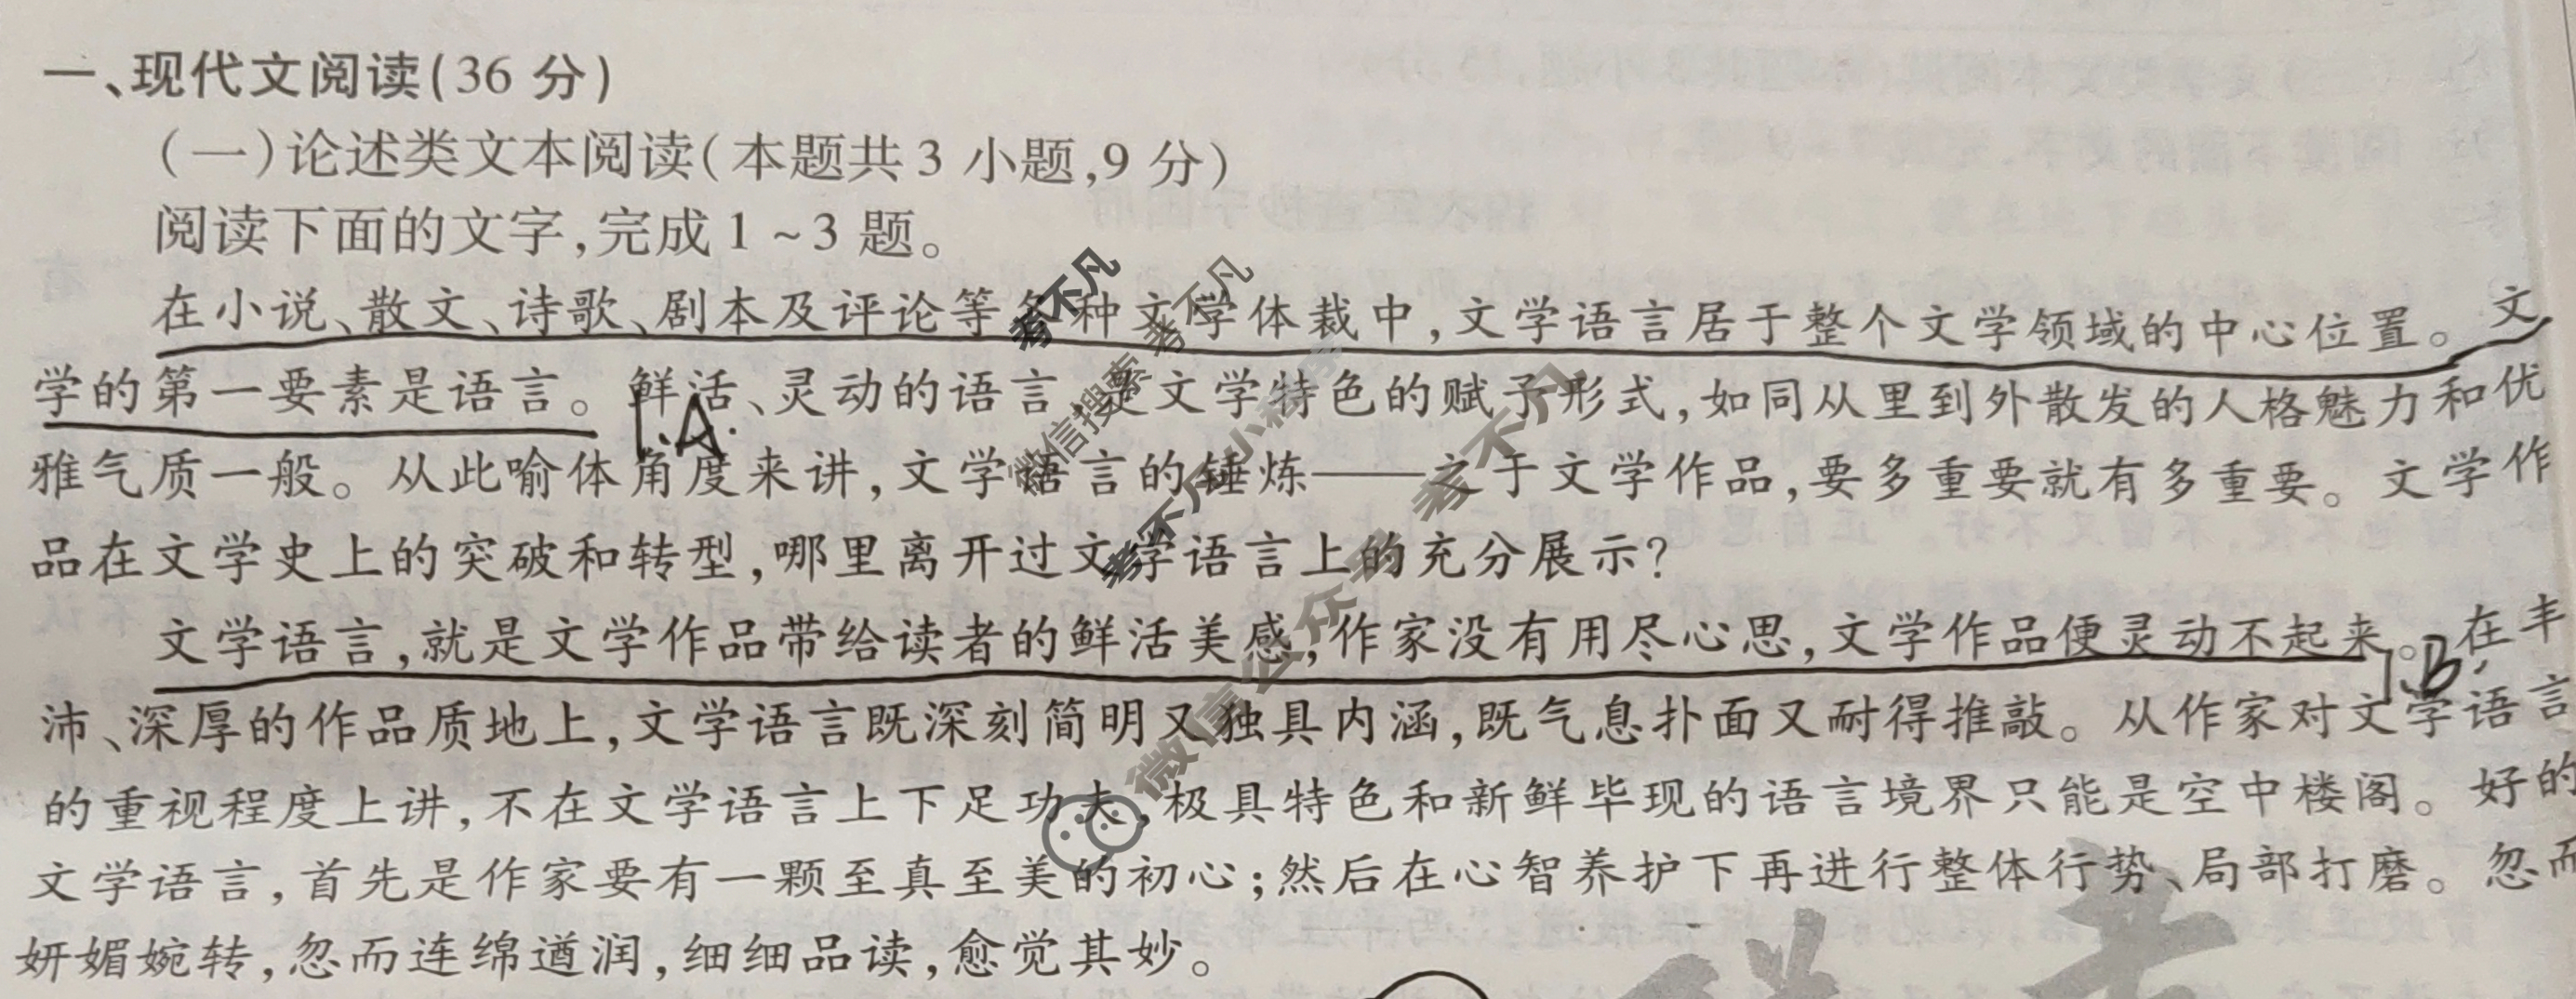 一、现代文阅读(36 分)
(一)论述类文本阅读(本题共3 小题,9 分)
阅读下面的文字,完成1~3 题。
在小说、散文、诗歌、剧本及评论等各种文学体裁中,文学语言居于整个文学领域的中心位置。文
学的第一要素是语言。鲜活、灵动的语言,是文学特色的赋予形式,如同从里到外散发的人格魅力和优
1.A.
雅气质一般。从此喻体角度来讲,文学语言的锤炼——之于文学作品,要多重要就有多重要。文学作
品在文学史上的突破和转型,哪里离开过文学语言上的充分展示?
文学语言,就是文学作品带给读者的鲜活美感,作家没有用尽心思,文学作品便灵动不起来。在丰
1.B.
沛、深厚的作品质地上,文学语言既深刻简明又独具内涵,既气息扑面又耐得推敲。从作家对文学语言
的重视程度上讲,不在文学语言上下足功夫,极具特色和新鲜毕现的语言境界只能是空中楼阁。好的
文学语言,首先是作家要有一颗至真至美的初心;然后在心智养护下再进行整体行势、局部打磨。忽而
妍媚婉转,忽而连绵遒润,细细品读,愈觉其妙。
考不凡
考不凡
微信搜索
考不凡小程序
微信公众号 考不凡